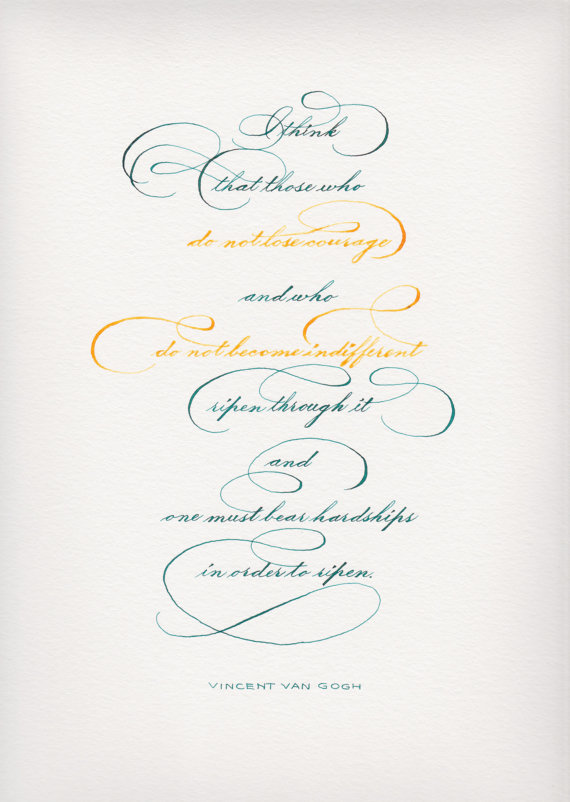 I think
that those who
do not lose courage
and who
do not become indifferent
ripen through it
and
one must bear hardships
in order to ripen.
VINCENT VAN GOGH